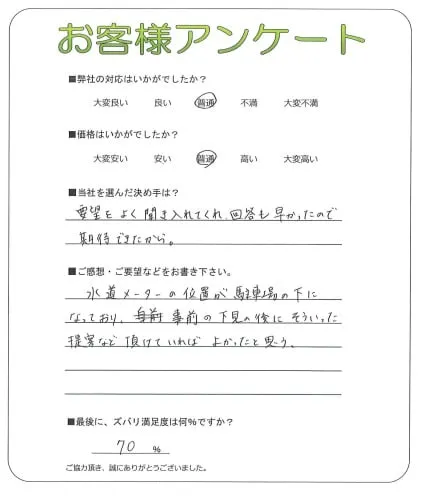 お客様アンケート
■弊社の対応はいかがでしたか？
大変良い 良い 普通 不満 大変不満
■価格はいかがでしたか？
大変安い 安い 普通 高い 大変高い
■当社を選んだ決め手は？
要望をよく聞き入れてくれ、回答も早かったので
期待できたから。
■ご感想・ご要望などをお書き下さい。
水道メーターの位置が駐車場の下に
なっており、事前の下見の後にそういった
提案など頂けていれば よかったと思う。
■最後に、ズバリ満足度は何%ですか？
70 %
ご協力頂き、誠にありがとうございました。